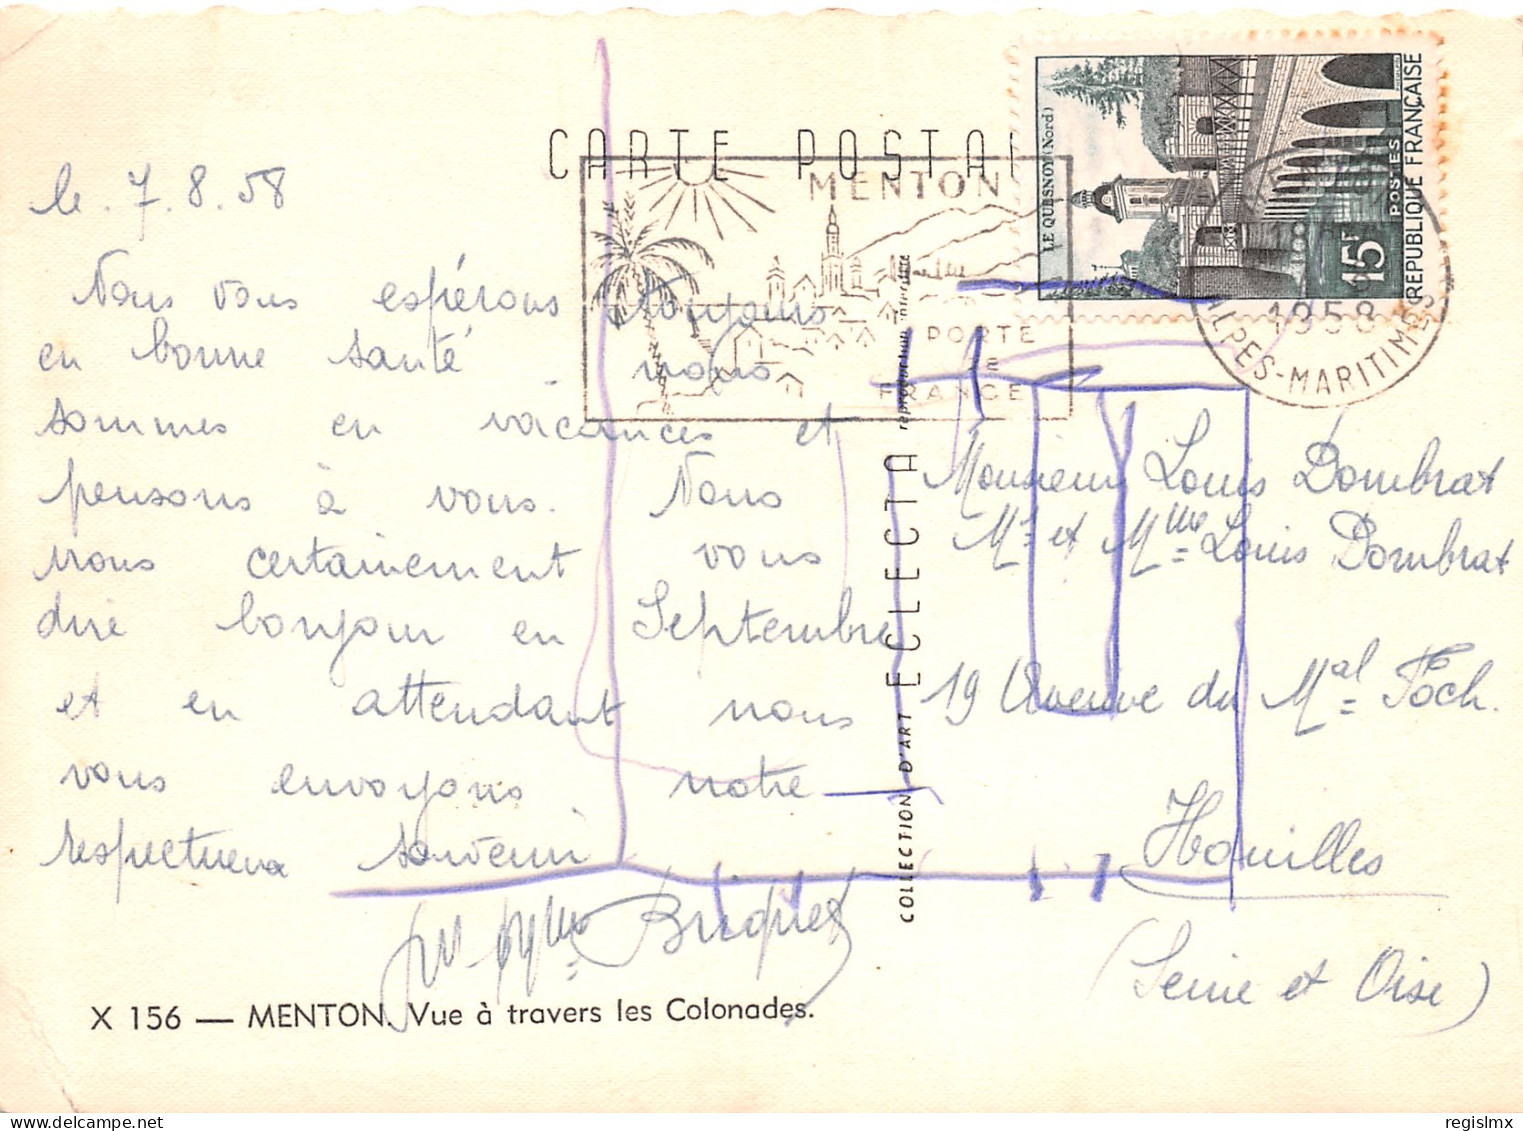 CARTE POSTAL
le. 7. 8. 58
Nous vous espérons toujours
en bonne santé. nous
sommes en vacances et
pensons à vous. Nous
irons certainement vous
dire bonjour en Septembre
et en attendant nous
vous envoyons notre
respectueux souvenir
Briquet
X 156 — MENTON. Vue à travers les Colonades.
MENTON
PORTE
de
FRANCE
COLLECTION D'ART ECLECTA reproduction interdite
LE QUESNOY (Nord)
15F
POSTES
REPUBLIQUE FRANÇAISE
1958
ALPES-MARITIMES
Monsieur Louis Dombrat
Mr et Mme Louis Dombrat
19 Avenue du Mal Foch.
Houilles
(Seine et Oise)
regislmx